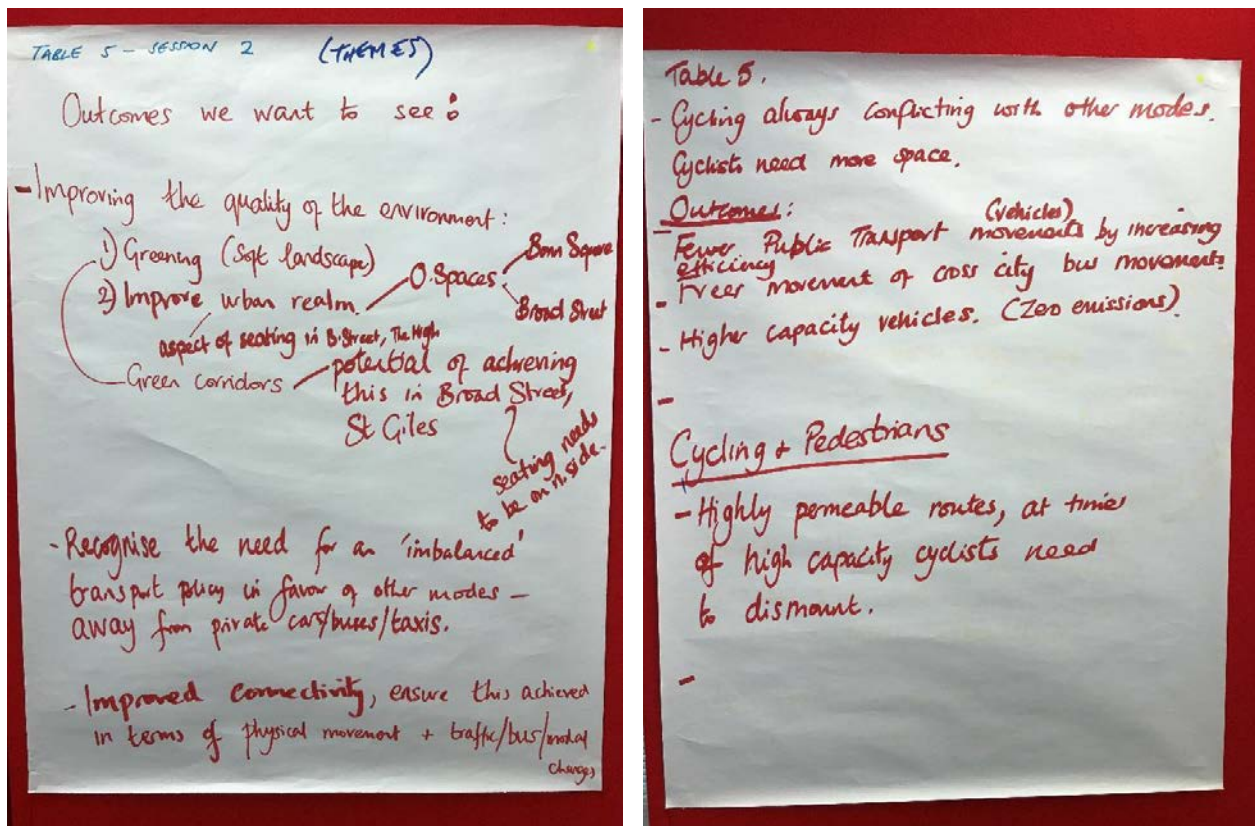 TABLE 5 - SESSION 2 (THEMES)
Outcomes we want to see :
- Improving the quality of the environment :
1) Greening (Soft landscape)
2) Improve urban realm. O.Spaces
Bonn Square
Broad Street
aspect of seating in B.Street, The High
Green corridors potential of achieving
this in Broad Street,
St Giles
seating needs
to be on n.side.
- Recognise the need for an 'imbalanced'
transport policy in favour of other modes -
away from private cars/buses/taxis.
- Improved connectivity, ensure this achieved
in terms of physical movement + traffic/bus/modal
changes
Table 5.
- Cycling always conflicting with other modes.
Cyclists need more space.
Outcomes :
- Fewer Public Transport (vehicles) movements by increasing
efficiency
- Freer movement of cross city bus movements
- Higher capacity vehicles. (Zero emissions)
-
Cycling + Pedestrians
- Highly permeable routes, at times
of high capacity cyclists need
to dismount.
-